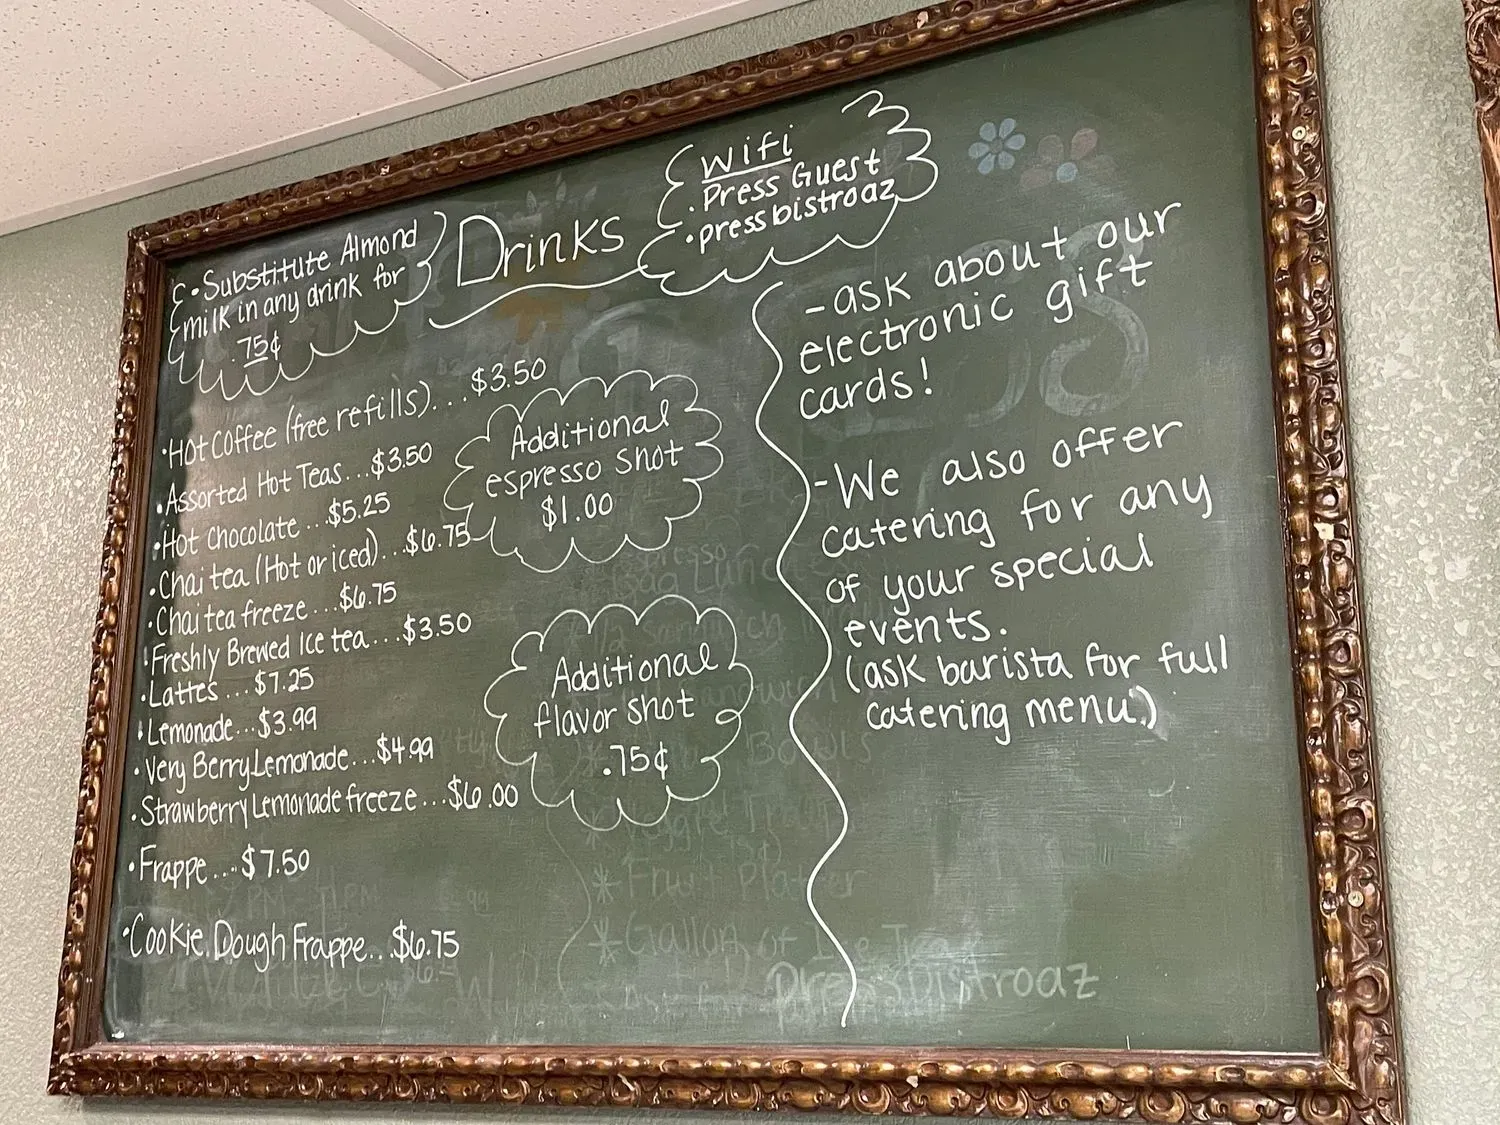 • Substitute Almond
milk in any drink for
.75¢
Drinks
Wifi
• Press Guest
• pressbistroaz
• Hot Coffee (free refills)...$3.50
• Assorted Hot Teas...$3.50
• Hot Chocolate...$5.25
• Chai tea (Hot or iced)...$6.75
• Chai tea freeze...$6.75
• Freshly Brewed Ice tea...$3.50
• Lattes...$7.25
• Lemonade...$3.99
• Very Berry Lemonade...$4.99
• Strawberry Lemonade freeze...$6.00
• Frappe...$7.50
• Cookie Dough Frappe...$6.75
Additional
espresso shot
$1.00
Additional
flavor shot
.75¢
-ask about our
electronic gift
cards!
-We also offer
catering for any
of your special
events.
(ask barista for full
catering menu.)
* Fruit Platter
* Gallon of Ice Tea
pressbistroaz